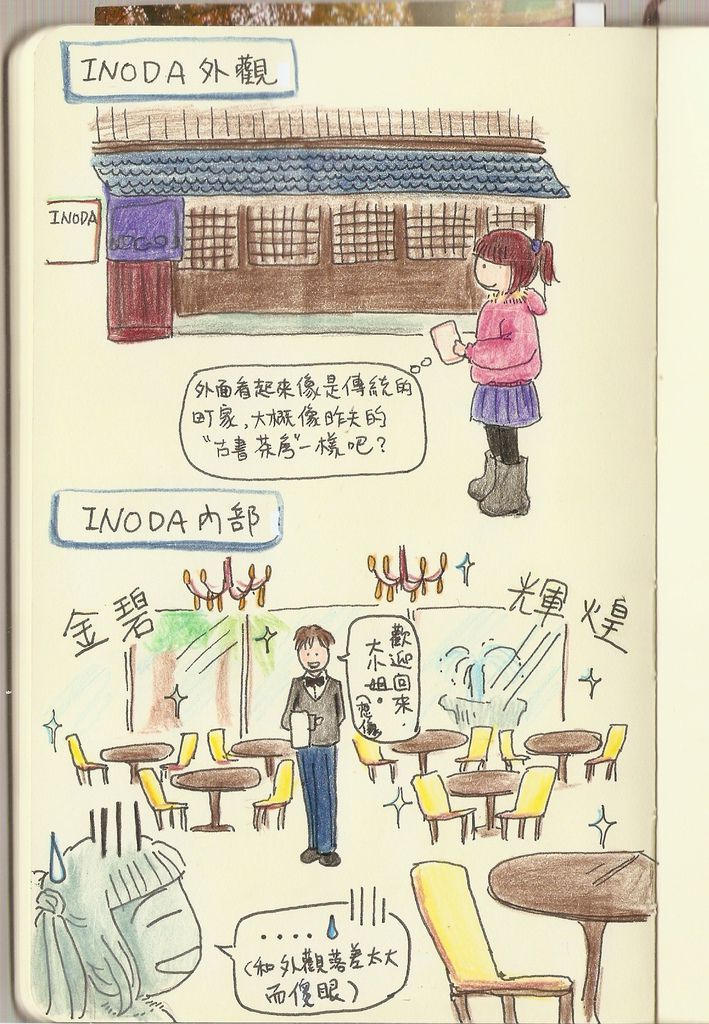 INODA 外觀
INODA
外面看起來像是傳統的
町家,大概像昨天的
"古書茶房"一樣吧?
INODA 內部
金碧
輝煌
歡迎回來,
大小姐。
(想像)
....
(和外觀落差太大
而傻眼)